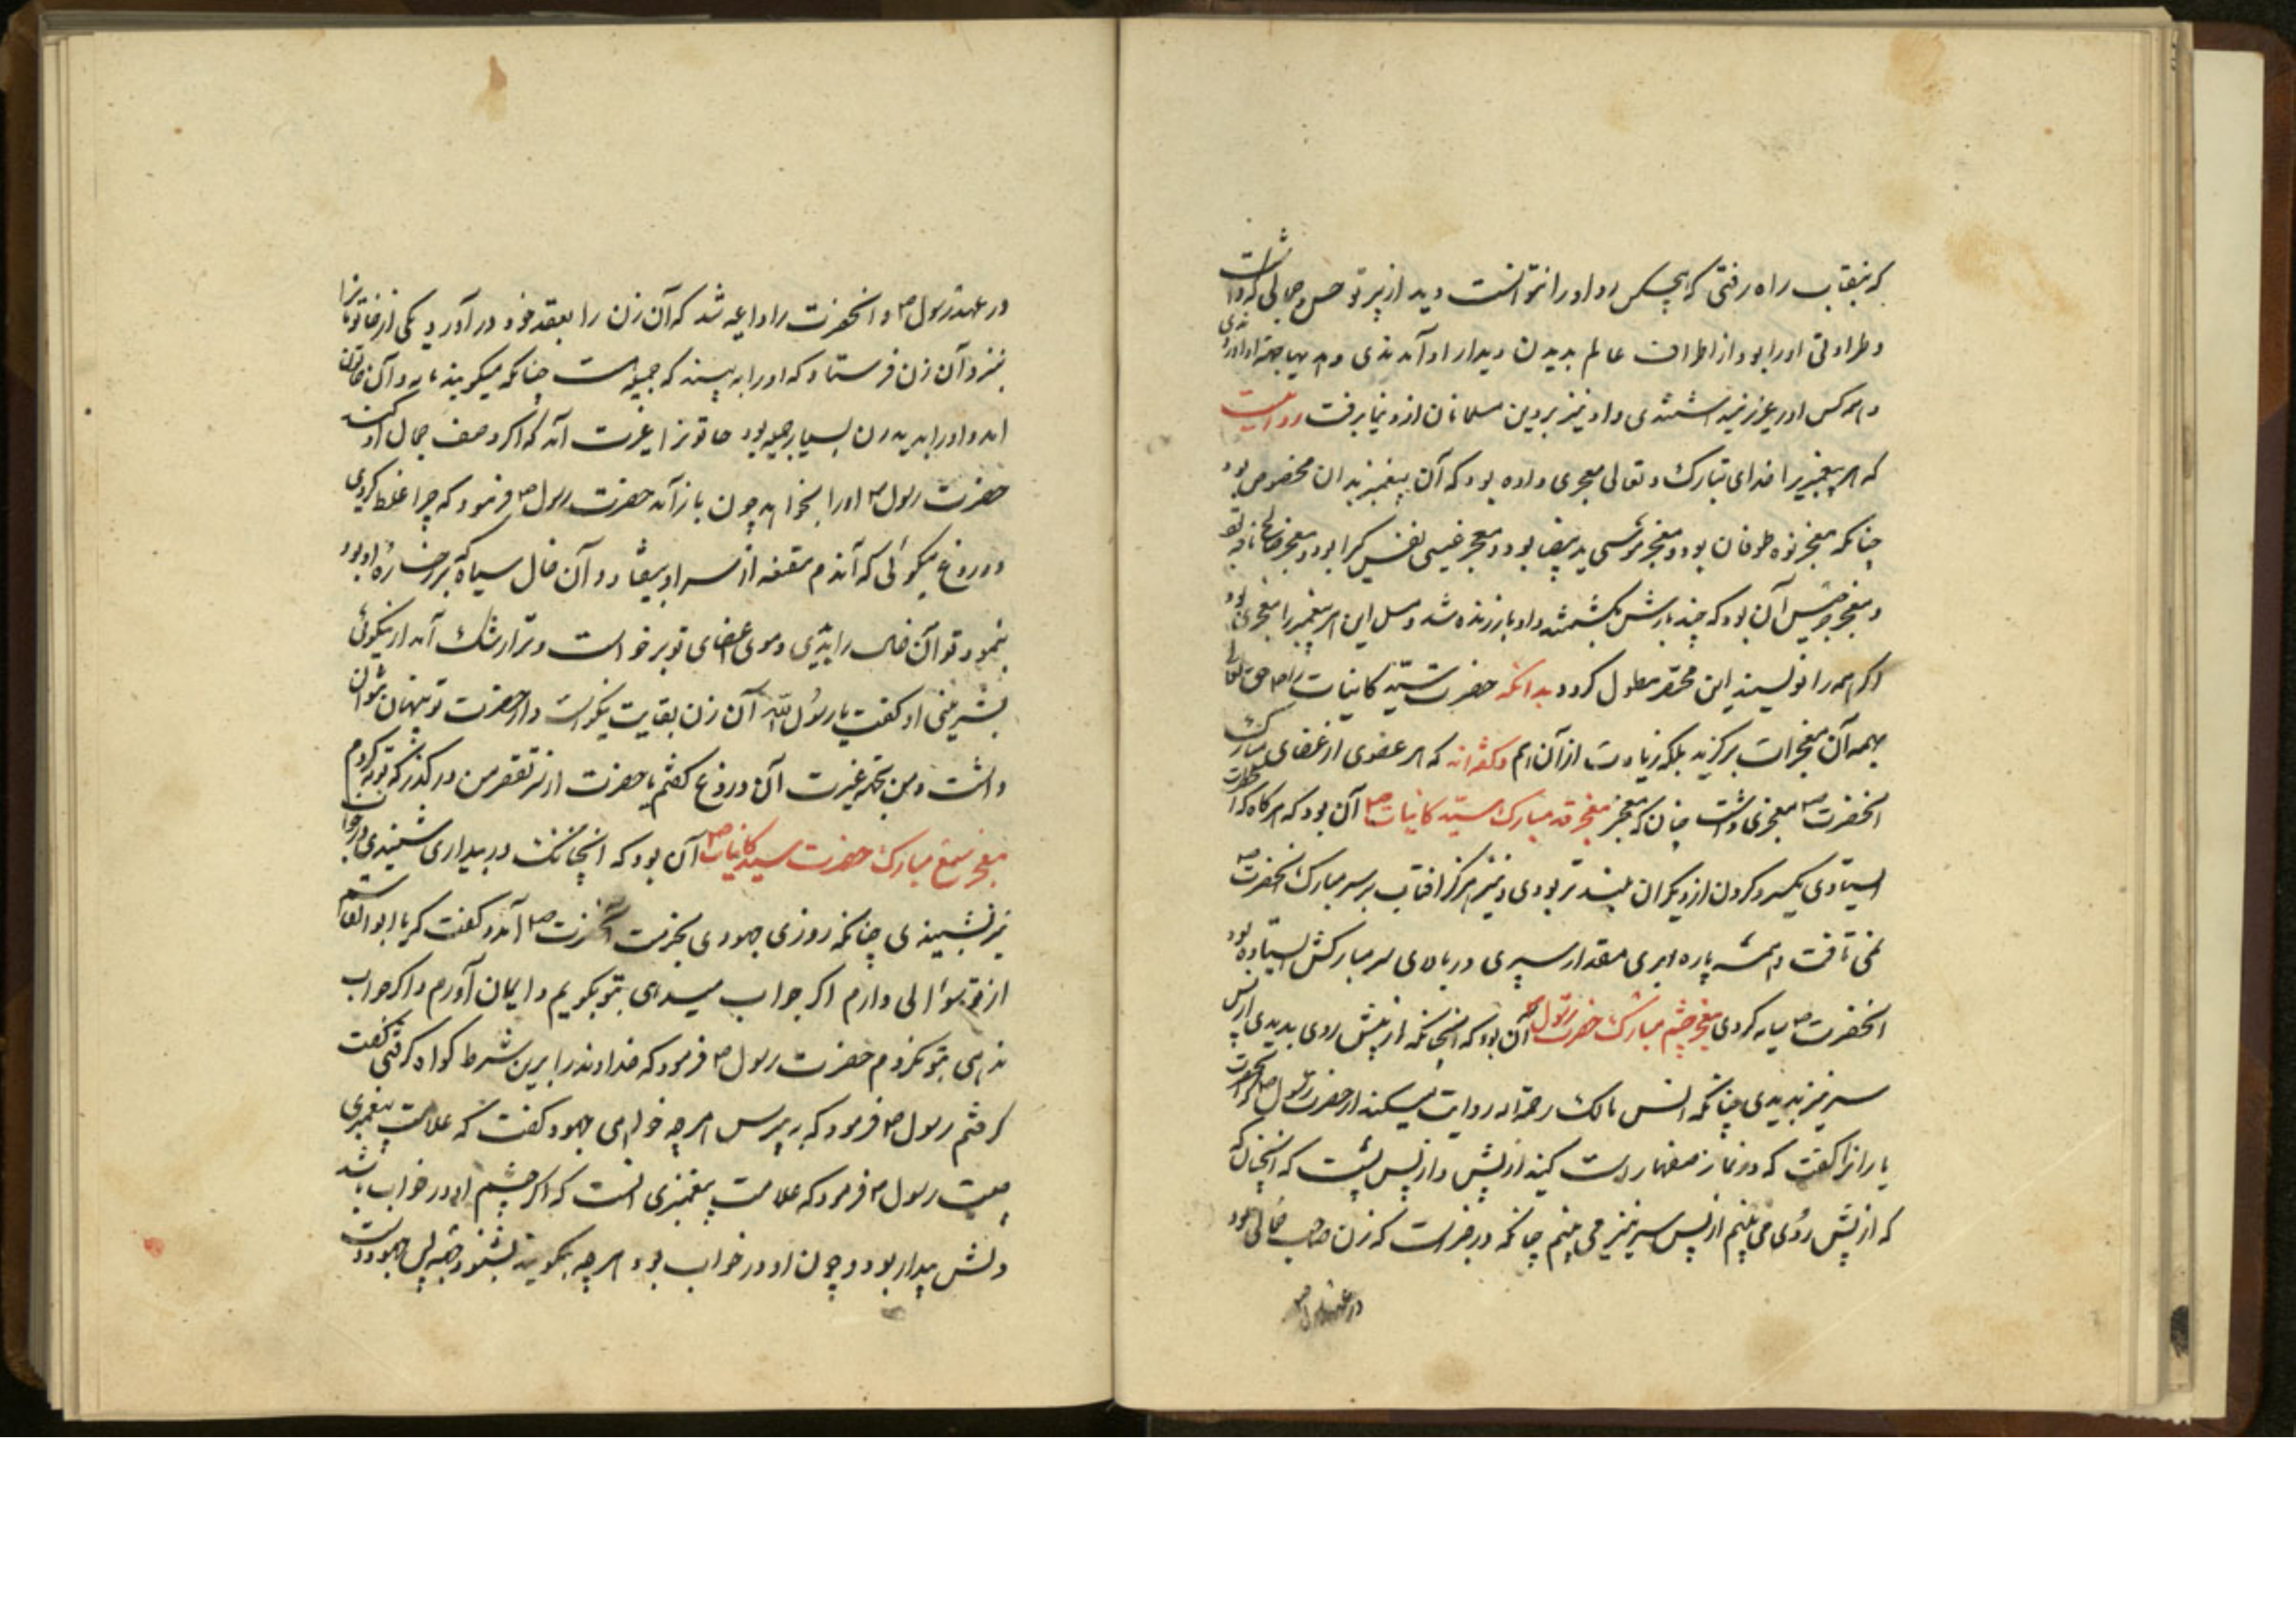 که بنقاب راه رفتی که هیچکس رو او را نتوانست دید از پرتو حسن و جمالی که داشت
و طراوتی او را بود از اطراف عالم بدیدن دیدار او آمدندی و
و همه کس او را عزیز و او نیز بر دین مسلمانان از دنیا برفت روایت است
که هر پیغمبریرا خدای تبارک و تعالی معجزی داده بود که آن پیغمبر بدان مخصوص بود
چنانکه معجز نوح طوفان بود و معجز موسی ید بیضا بود و معجز عیسی نفس کیرا بود و معجز صالح ناقه
و معجز جرجیس آن بود که چند بارش بکشتند و او باز زنده شد و مثل این هر پیغمبر را معجزی بود
اگر همه را نویسیم این مختصر مطول کردد بدانکه حضرت سید کاینات را ص حق تعالی
بهمه آن معجزات برکزید بلکه زیادت از آن هم و گفته‌اند که هر عضوی از عضای مبارک
انحضرت ص معجزی داشت چنان که معجز معجز قد مبارک سید کاینات ص آن بود که هر کاه که آنحضرت
ایستادی یکسر و کردن از دیکران بلندتر بودی و نیز هرکز افتاب بر سر مبارک انحضرت ص
نمی تافت و همیشه پاره ابری مقدار سپری در بالای سر مبارکش ایستاده بود
انحضرت ص سایه کردی معجز چشم مبارک حضرت رسول ص آن بود که انچنانکه از پیش روی بدیدی از پس
سر نیز بدیدی چنانکه انس مالک رحمة اله روایت میکند از حضرت رسول ص که آنحضرت
یارانرا کفت که در نماز صفها راست کنید از پیش و از پس پشت که انچنان که
که از پیش روی می بینم از پس سر نیز می بینم چنانکه در خبر است که زن صاحب جمالی بود
در عهد رسول ص
در عهد رسول ص و انحضرت را داعیه شد که آن زن را بعقد خود در آورد یکی از خاتونانرا
بنزد آن زن فرستاد که او را به بیند که جمیله است چنانکه میکویند یا نه و آن خاتون
امد و او را بدید زن بسیار جمیله بود خاتونرا غیرت آمد که اکر وصف جمال او کنم
حضرت رسول ص او را بخواهد چون باز آمد حضرت رسول ص فرمود که چرا غلط کردی
و دروغ میکوئی که آندم مقنعه از سر او بیفتاد و آن خال سیاه که بر رخساره او بود
بنمود تو آن خال را بدیدی و موی اعضای تو برخواست و ترا رشک آمد از نیکوئی
بشره او کفت یا رسول الله آن زن بغایت نیکو است و از حضرت تو پنهان نتوان
داشت و من بجهة غیرت آن دروغ کفتم یا حضرت از سر تقصیر من در کذر که توبه کردم
معجز سمع مبارک حضرت سید کاینات ص آن بود که انچنانک در بیداری شنیدی در خواب
نیز بشنیدی چنانکه روزی جهودی بحضرت آنحضرت ص آمد و کفت که یا ابوالقاسم
از تو سوالی دارم اکر جواب میدهی بتو بکویم و ایمان آورم و اکر جواب
ندهی بتو نکروم حضرت رسول ص فرمود که خداوند را برین شرط کواه کرفتی کفت
کرفتم رسول ص فرمود که به پرس هر چه خواهی جهود کفت که علامت پیغمبری
چیست رسول ص فرمود که علامت پیغمبری انست که اکر چشم او در خواب باشد
دلش بیدار بود و چون او در خواب بود هر چه بکویند بشنود پس جهود